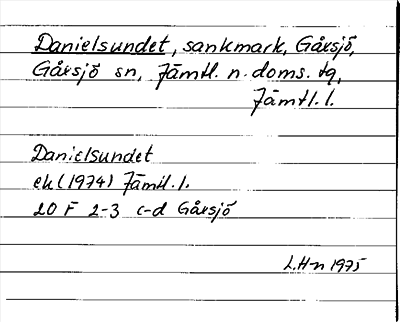 Danielsundet, sankmark, Gåxsjö,
Gåxsjö sn, Jämtl. n. doms. tg,
Jämtl. l.
Danielsundet
ek (1974) Jämtl. l.
20 F 2-3 c-d Gåxsjö
L.H-n 1975